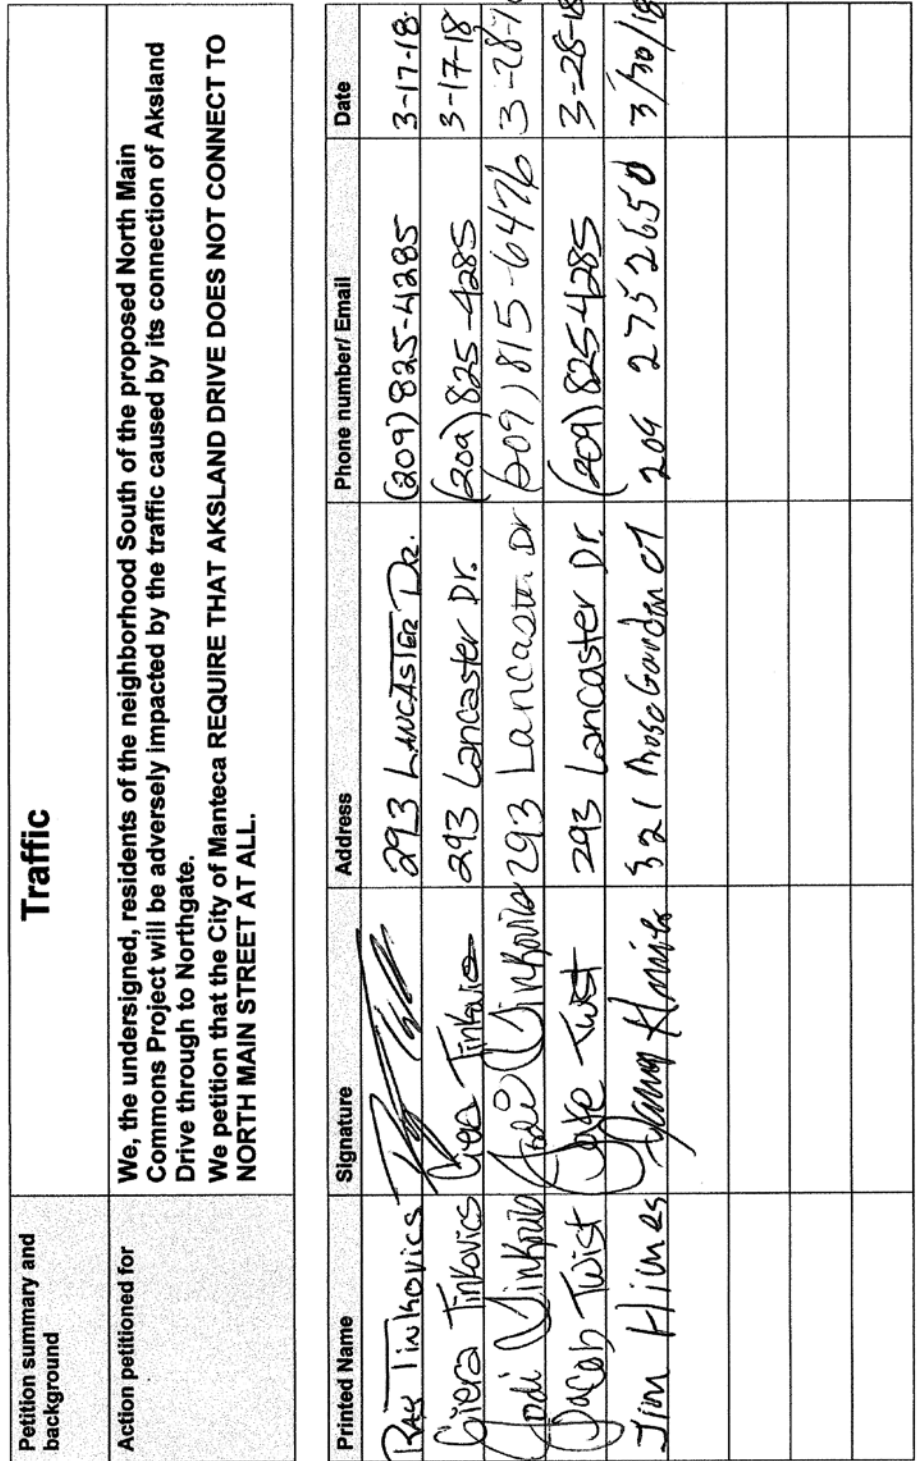 Petition summary and
background
Traffic
Action petitioned for
We, the undersigned, residents of the neighborhood South of the proposed North Main
Commons Project will be adversely impacted by the traffic caused by its connection of Aksland
Drive through to Northgate.
We petition that the City of Manteca REQUIRE THAT AKSLAND DRIVE DOES NOT CONNECT TO
NORTH MAIN STREET AT ALL.
Printed Name Signature Address Phone number/ Email Date
Ray Tinkovics 293 LANCASTER DR. (209) 825-4285 3-17-18
Ciera Tinkovics Ciera 293 Lancaster Dr. (209) 825-4285 3-17-18
Jodi 293 Lancaster Dr 815-6476
Jacob Twist Jake Twist 293 Lancaster Dr. (209) 825-4285 3-28-18
Jim Himes 321 Rose Garden CT 209 275 2650 3/30/18